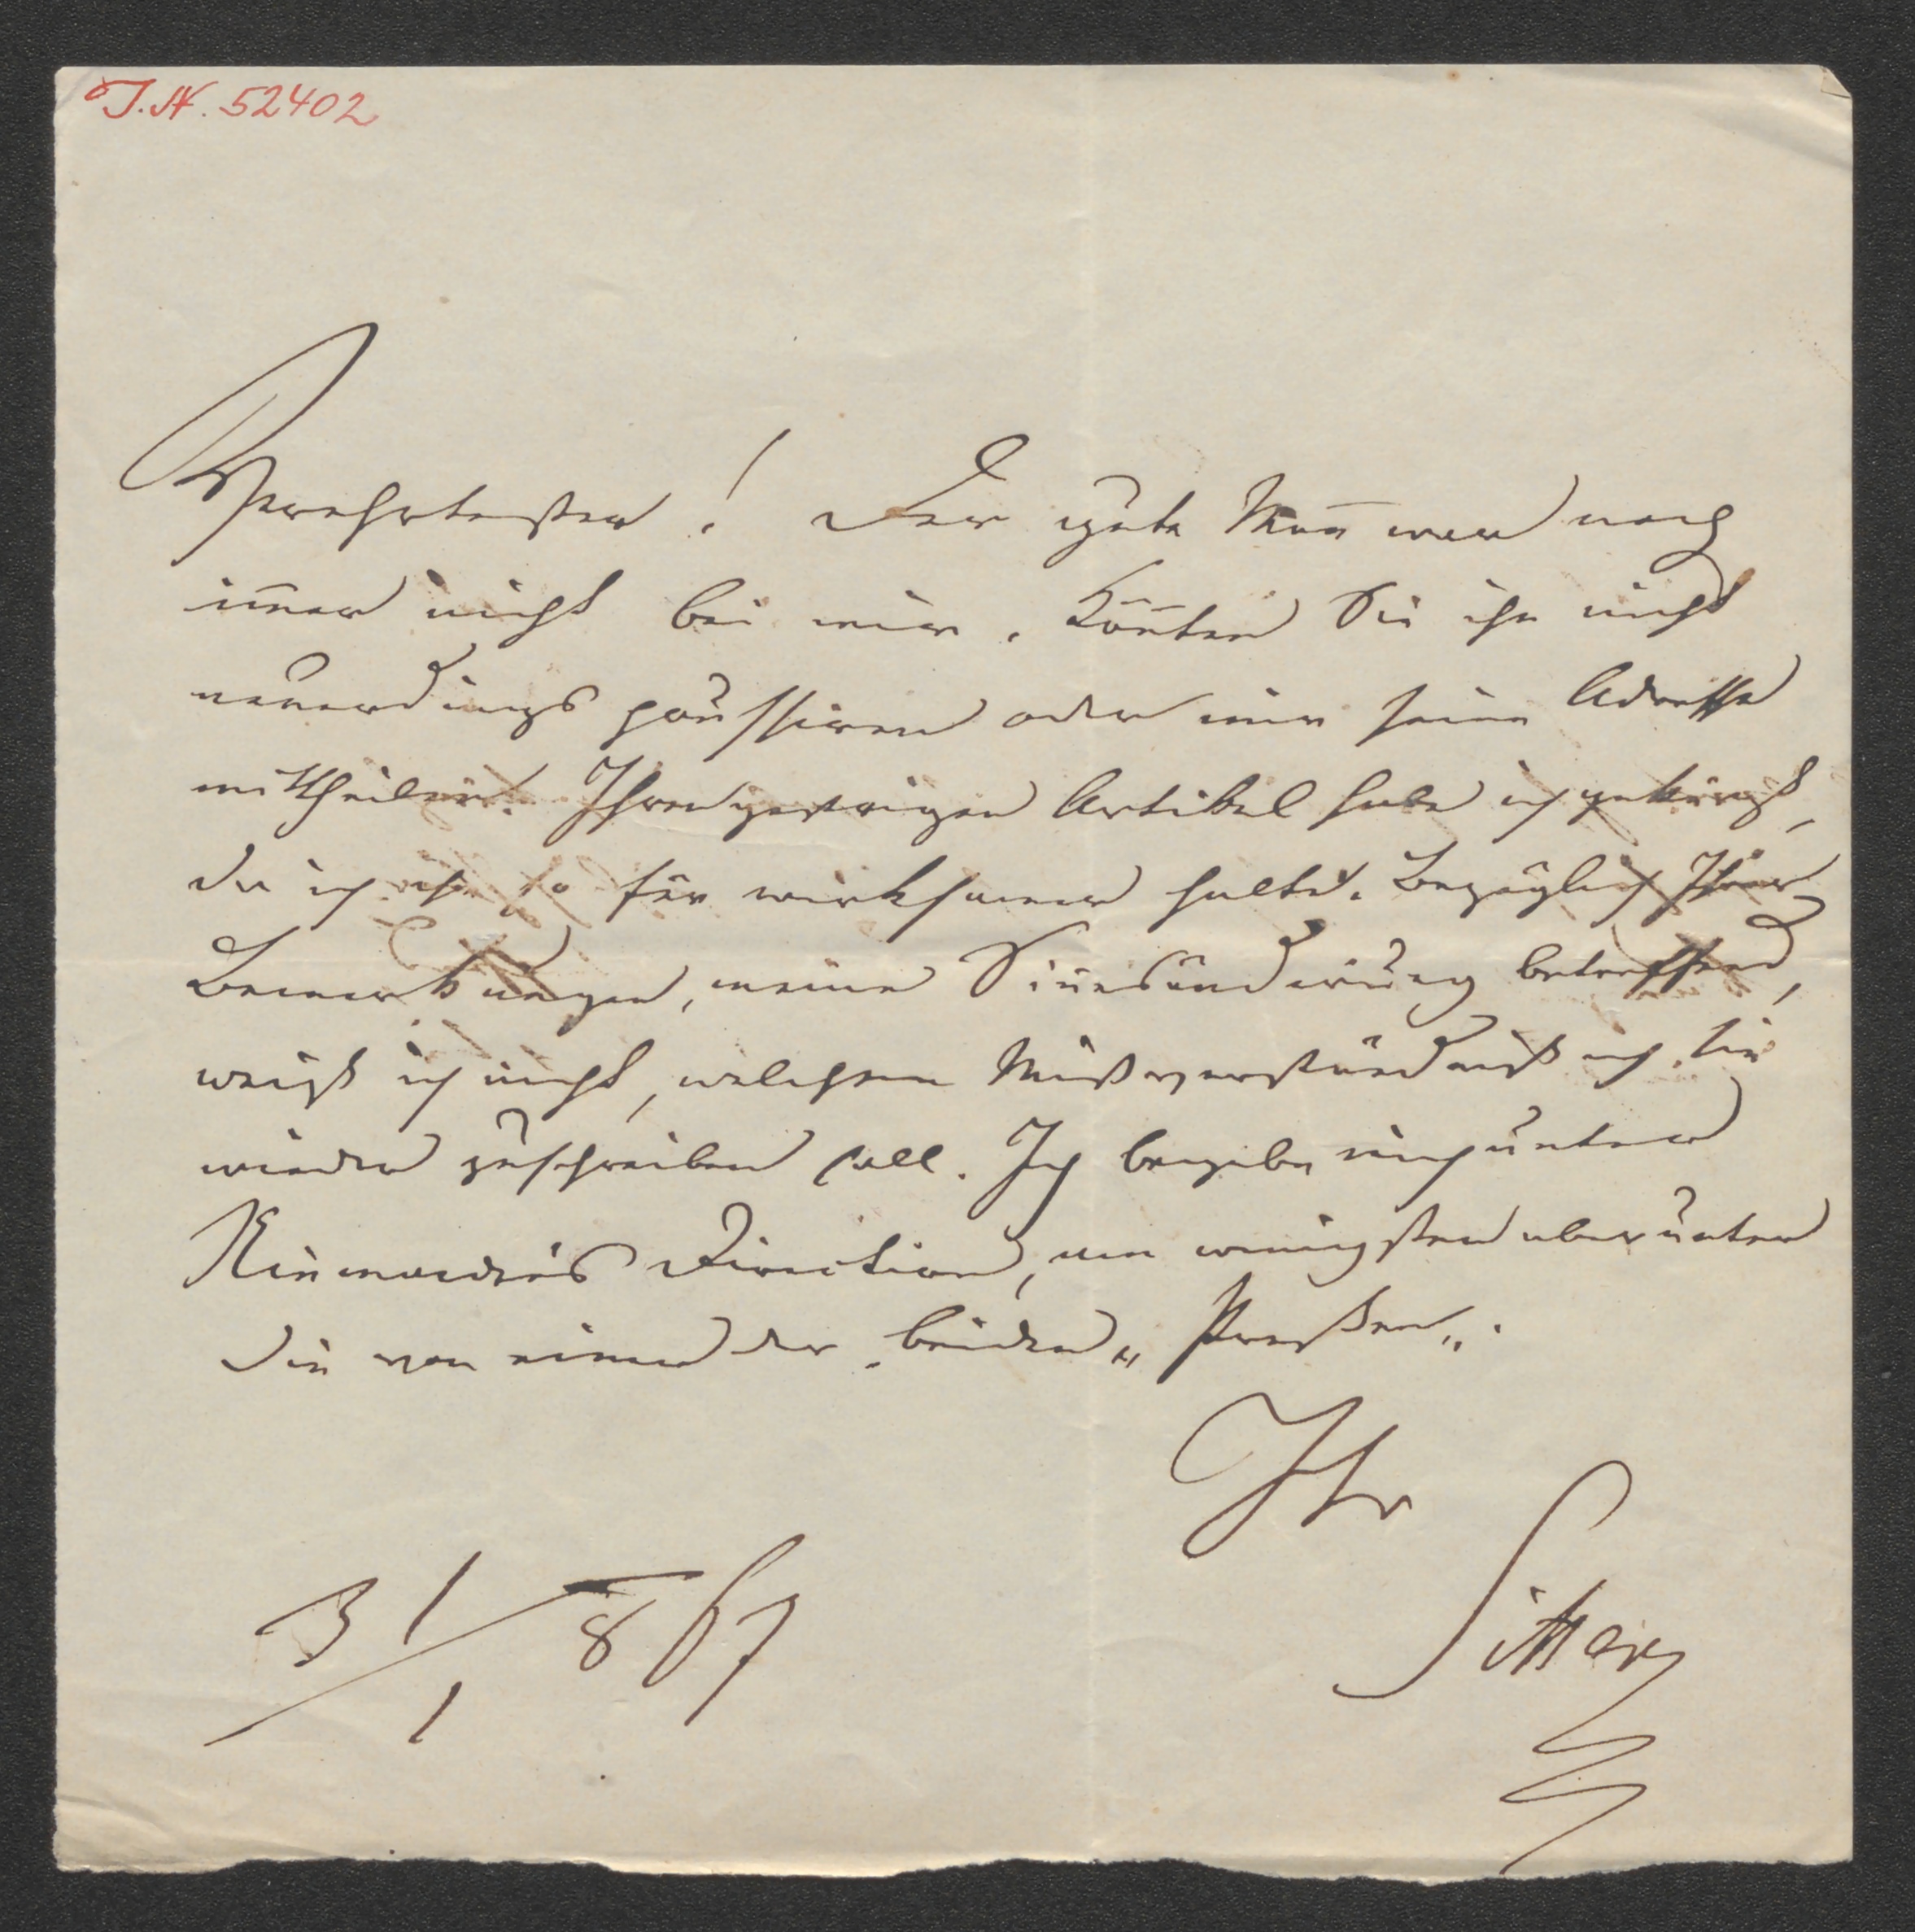 J.N. 52402
Verehrtester! Der gute Mañ war noch
im̄er nicht bei mir. Kön̄ten Sie ihn nicht
neuerdings poussiren oder mir seine Adresse
mittheilen? Ihren gestrigen Artikel habe ich gekürzt,
da ich ihn so für wirksamer halte. Bezüglich Ihrer
Bemerkungen, meine Sin̄esänderung betreffend,
weiß ich nicht, welchem Mißverständniß ich sie
wieder zuschreiben soll. Ich begebe mich unter
Niemandes Direction, am wenigsten aber unter
die von einer der beiden „Preßen„.
Ihr
31/1 867